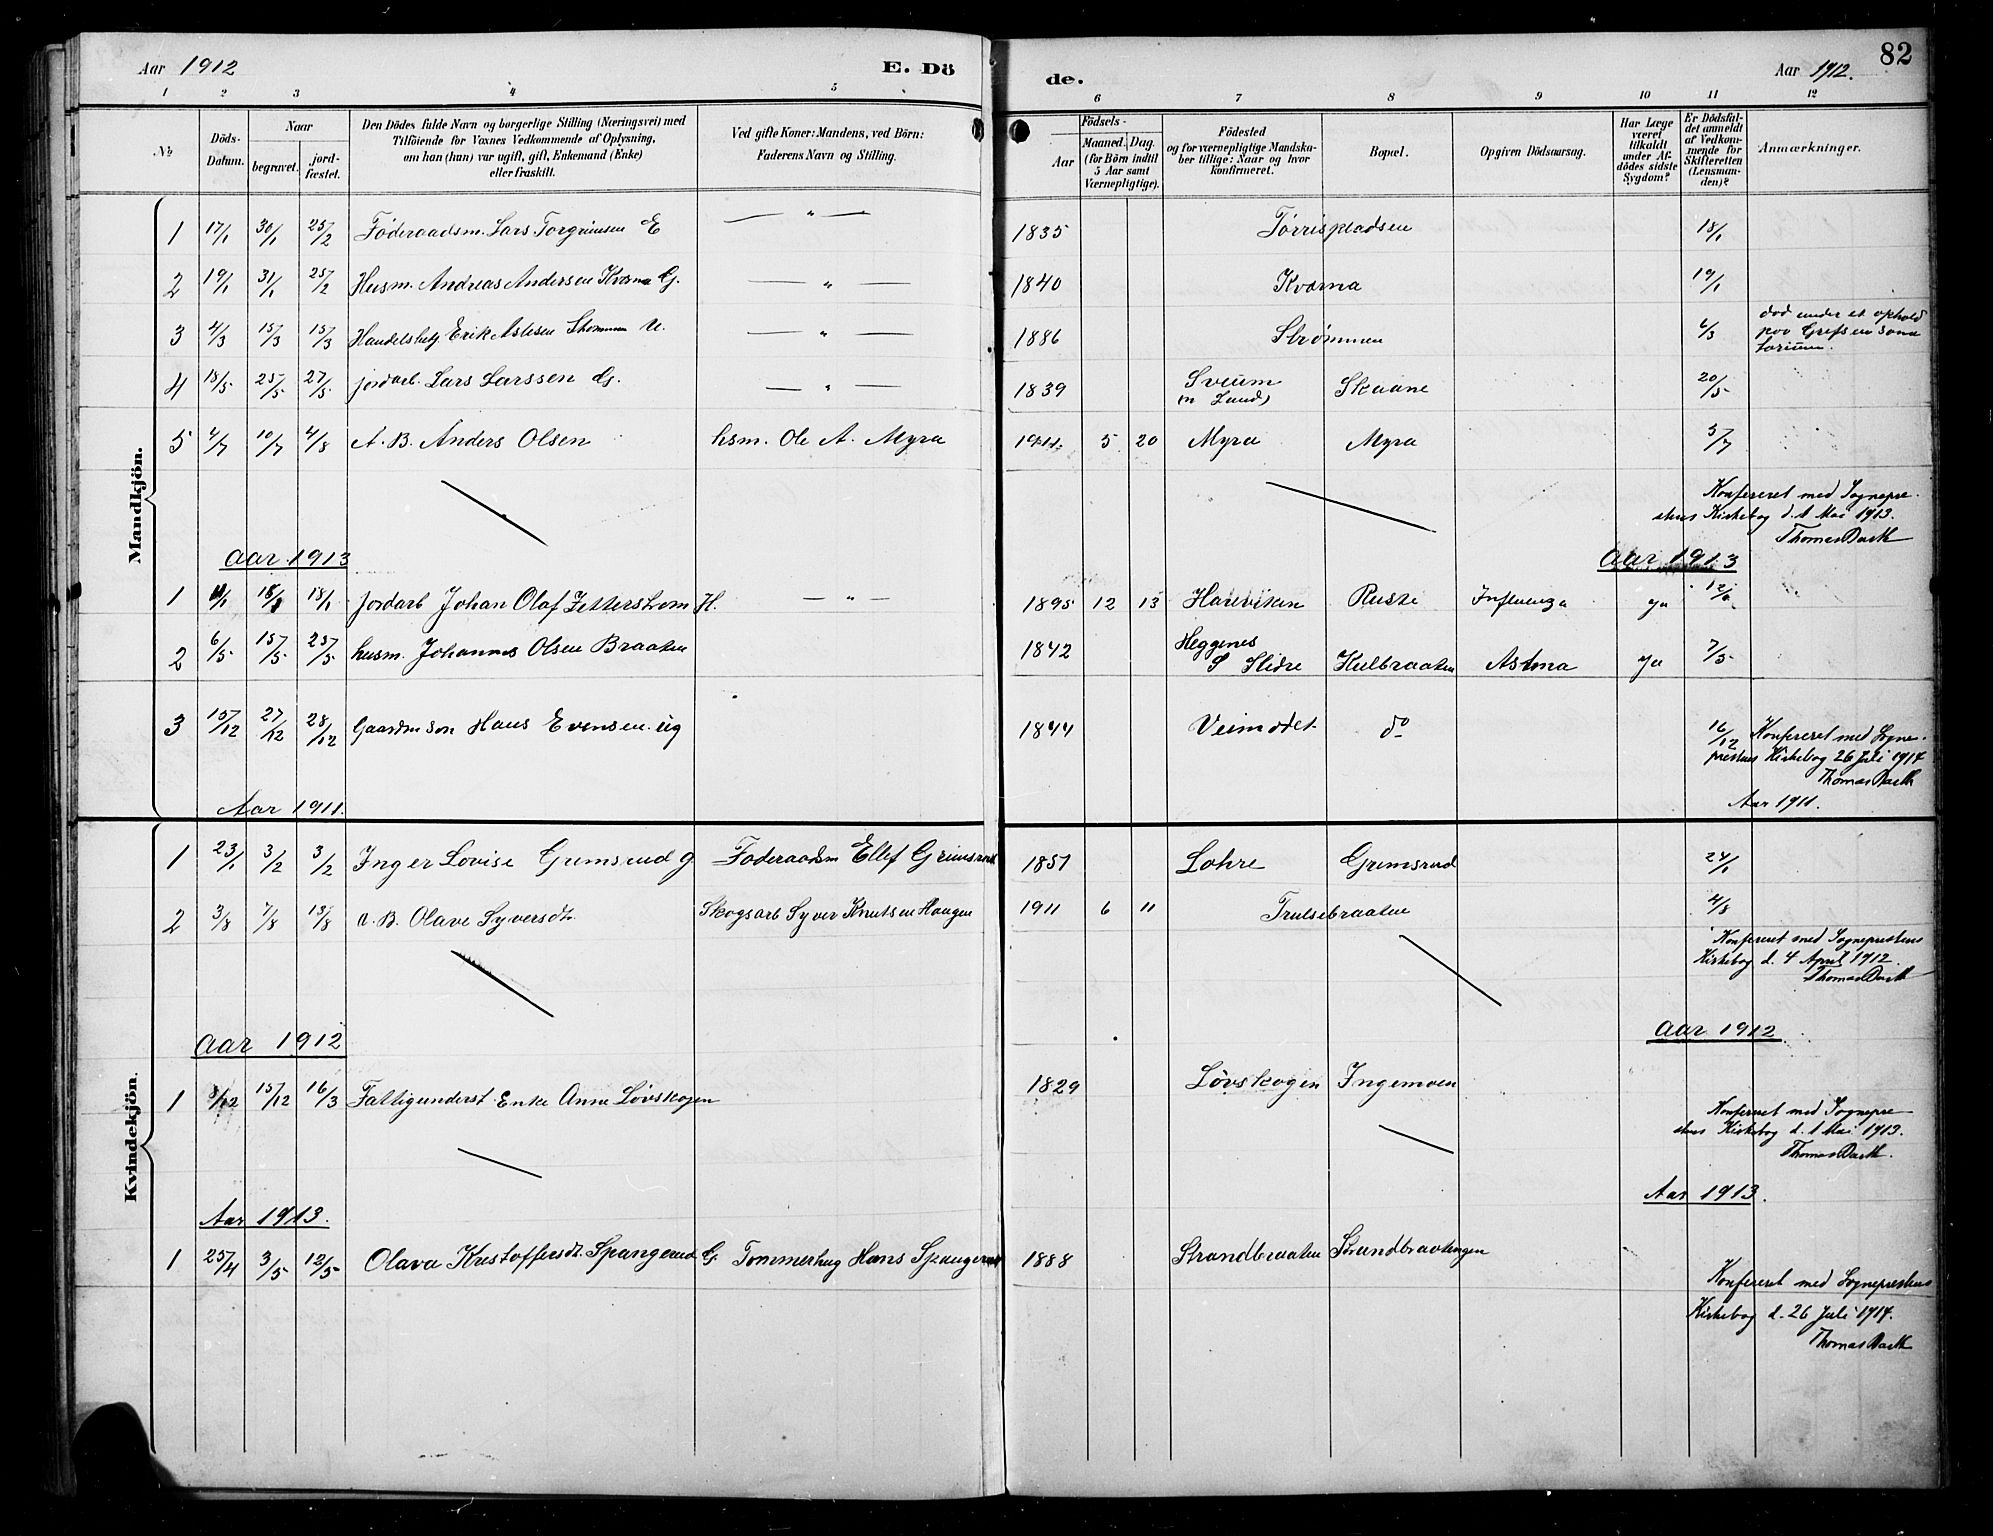 Aar 1912 E. Dö de. Aar 1912. 82
1 2 3 4 5 6 7 8 9 10 11 12
No
Döds-Datum.
Naar
begravet.
jord-fæstet.
Den Dödes fulde Navn og borgerlige Stilling (Næringsvei) med
Tilföiende for Voxnes Vedkommende af Oplysning,
om han (hun) var ugift, gift, Enkemand (Enke)
eller fraskilt.
Ved gifte Koner: Mandens, ved Börn:
Faderens Navn og Stilling.
Födsels-
Aar
Maaned. Dag.
(for Börn indtil
5 Aar samt
Værnepligtige).
Födested
og for værnepligtige Mandska-
ber tillige: Naar og hvor
konfirmeret.
Bopæl.
Opgiven Dödsaarsag.
Har Læge
været
tilkaldt
under Af-
dödes sidste
Sygdom?
Er Dödsfal-
det anmeldt
af Vedkom-
mende for
Skifteretten
(Lensman-
den)?
Anmærkninger.
Mandkjön.
1 17/1 30/1 25/2 Föderaadsm. Lars Torgrimsen E — " — 1835 Tørrispladsen 18/1
2 19/1 31/1 25/2 Husm. Andreas Andersen Kværna G. — " — 1840 Kværna 19/1
3 4/3 15/3 15/3 Handelsbetj Erik Aslesen Strømmen U. — " — 1886 Strømmen 6/3 død under et ophold
paa Grefsen sana
torium.
4 18/5 25/5 27/5 jordarb. Lars Larssen G. — " — 1839 Sveum
(n Land) Skaane 20/5
5 4/7 10/7 4/8 A. B. Anders Olsen hsm. Ole A. Myra 1911 5 20 Myra Myra 5/7
Konfereret med Sognepre-
stens Kirkebog d. 1 Mai 1913.
Thomas Barth
Aar 1913 Aar 1913
1 11/1 18/1 18/1 Jordarb Johan Olaf Zetterstrom H. — " — 1895 12 13 Hareviken Ruste Influenza ja 12/1
2 6/5 15/5 25/5 husm. Johannes Olsen Braaten 1842 Heggenes
S Slidre Kulbraaten Astma ja 7/5
3 15/12 27/12 28/12 Gaardm søn Hans Evensen ug 1844 Veimødet do 16/12 Konfereret med Sogne-
prestens Kirkebog 26 Juli 1914
Thomas Barth
Aar 1911. Aar 1911.
Kvindekjön.
1 23/1 3/2 3/2 Inger Lovise Grimsrud g Föderaadsm Ellef Grimsrud 1851 Lohre Grimsrud 24/1
2 3/8 7/8 13/8 u. B. Olave Syversdt. Skogsarb Syver Knutsen Haugen 1911 6 11 Trulsebraaten 4/8
Konfereret med Sogneprestens
Kirkebog d. 4 April 1912.
Thomas Barth
Aar 1912 Aar 1912
1 3/12 15/12 16/3 Fattigunderst. Enke Anne Løvskogen 1829 Løvskogen Ingemoen
Konfereret med Sognepre-
stens Kirkebog d. 1 Mai 1913.
Thomas Barth.
Aar 1913. Aar 1913.
1 25/4 3/5 12/5 Olava Kristoffersdt. Spangerud G. Tømmerhug Hans Spangerud 1888 Strandbraaten Strandbraatengen
Konfereret med Sogneprestens
Kirkebog d. 26 Juli 1914.
Thomas Barth